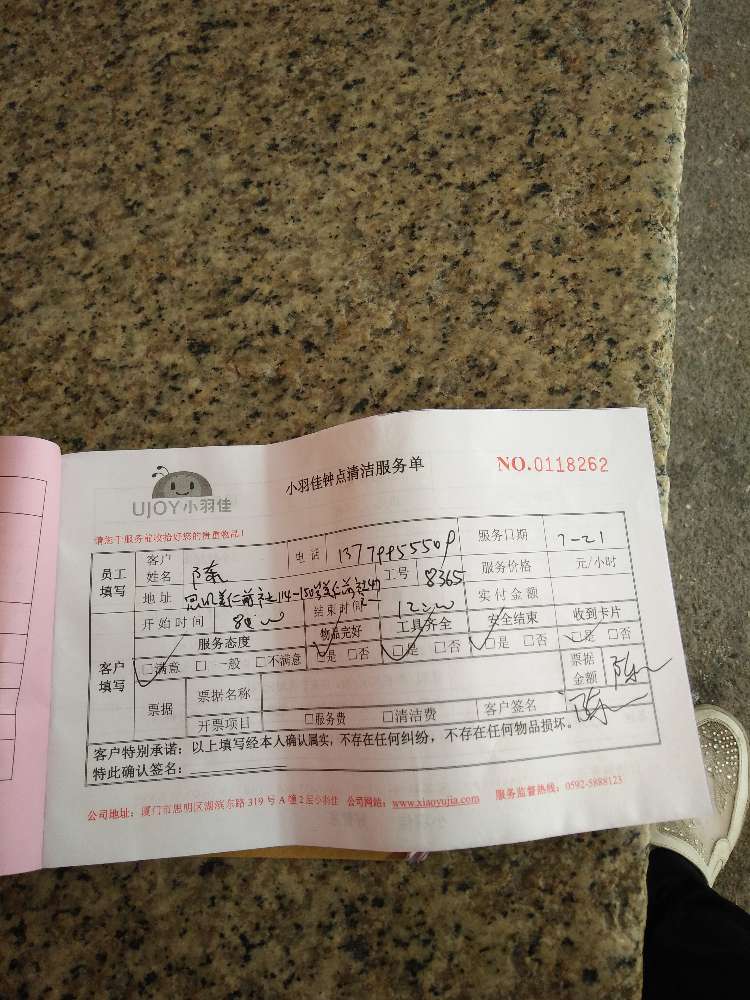 小羽佳钟点清洁服务单
NO.0118262
UJOY小羽佳
请您于服务前收拾好您的贵重物品!
员工填写 客户姓名 陈 电话 服务日期 7-21
地址 工号 8365 服务价格 元/小时
开始时间 结束时间 实付金额
客户填写 服务态度 物品完好 工具齐全 安全结束 收到卡片
□满意 □一般 □不满意 □是 □否 □是 □否 □是 □否 □是 □否
票据 票据名称 票据金额
开票项目 □服务费 □清洁费 客户签名
客户特别承诺:以上填写经本人确认属实,不存在任何纠纷,不存在任何物品损坏。
特此确认签名:
公司地址:厦门市思明区湖滨东路 319 号 A 幢 2 层小羽佳 公司网站:www.xiaoyujia.com 服务监督热线:0592-5888123